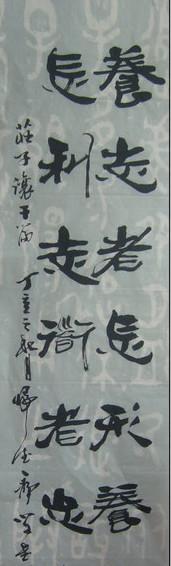 養志者忘形養
忘利志衜者忘
莊子讓王篇 丁亥之 月